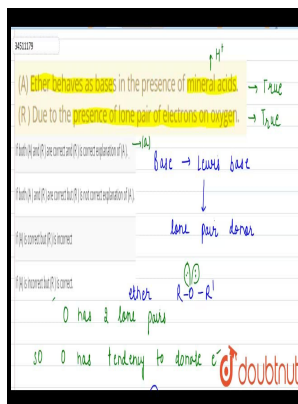 34511179
H+
(A) Ether behaves as bases in the presence of mineral acids. → True
(R ) Due to the presence of lone pair of electrons on oxygen. → True
If both (A) and (R ) are correct and (R ) is correct explanation of (A ). → (a)
Base → Lewis base
If both (A ) and (R ) are correct but (R ) is not correct explanation of (A ).
lone pair donor
If (A) is correct but (R ) is incorrect
If (A) is incorrect but (R ) is correct.
ether R-O-R'
O has 2 lone pairs
so O has tendency to donate e-
doubtnut